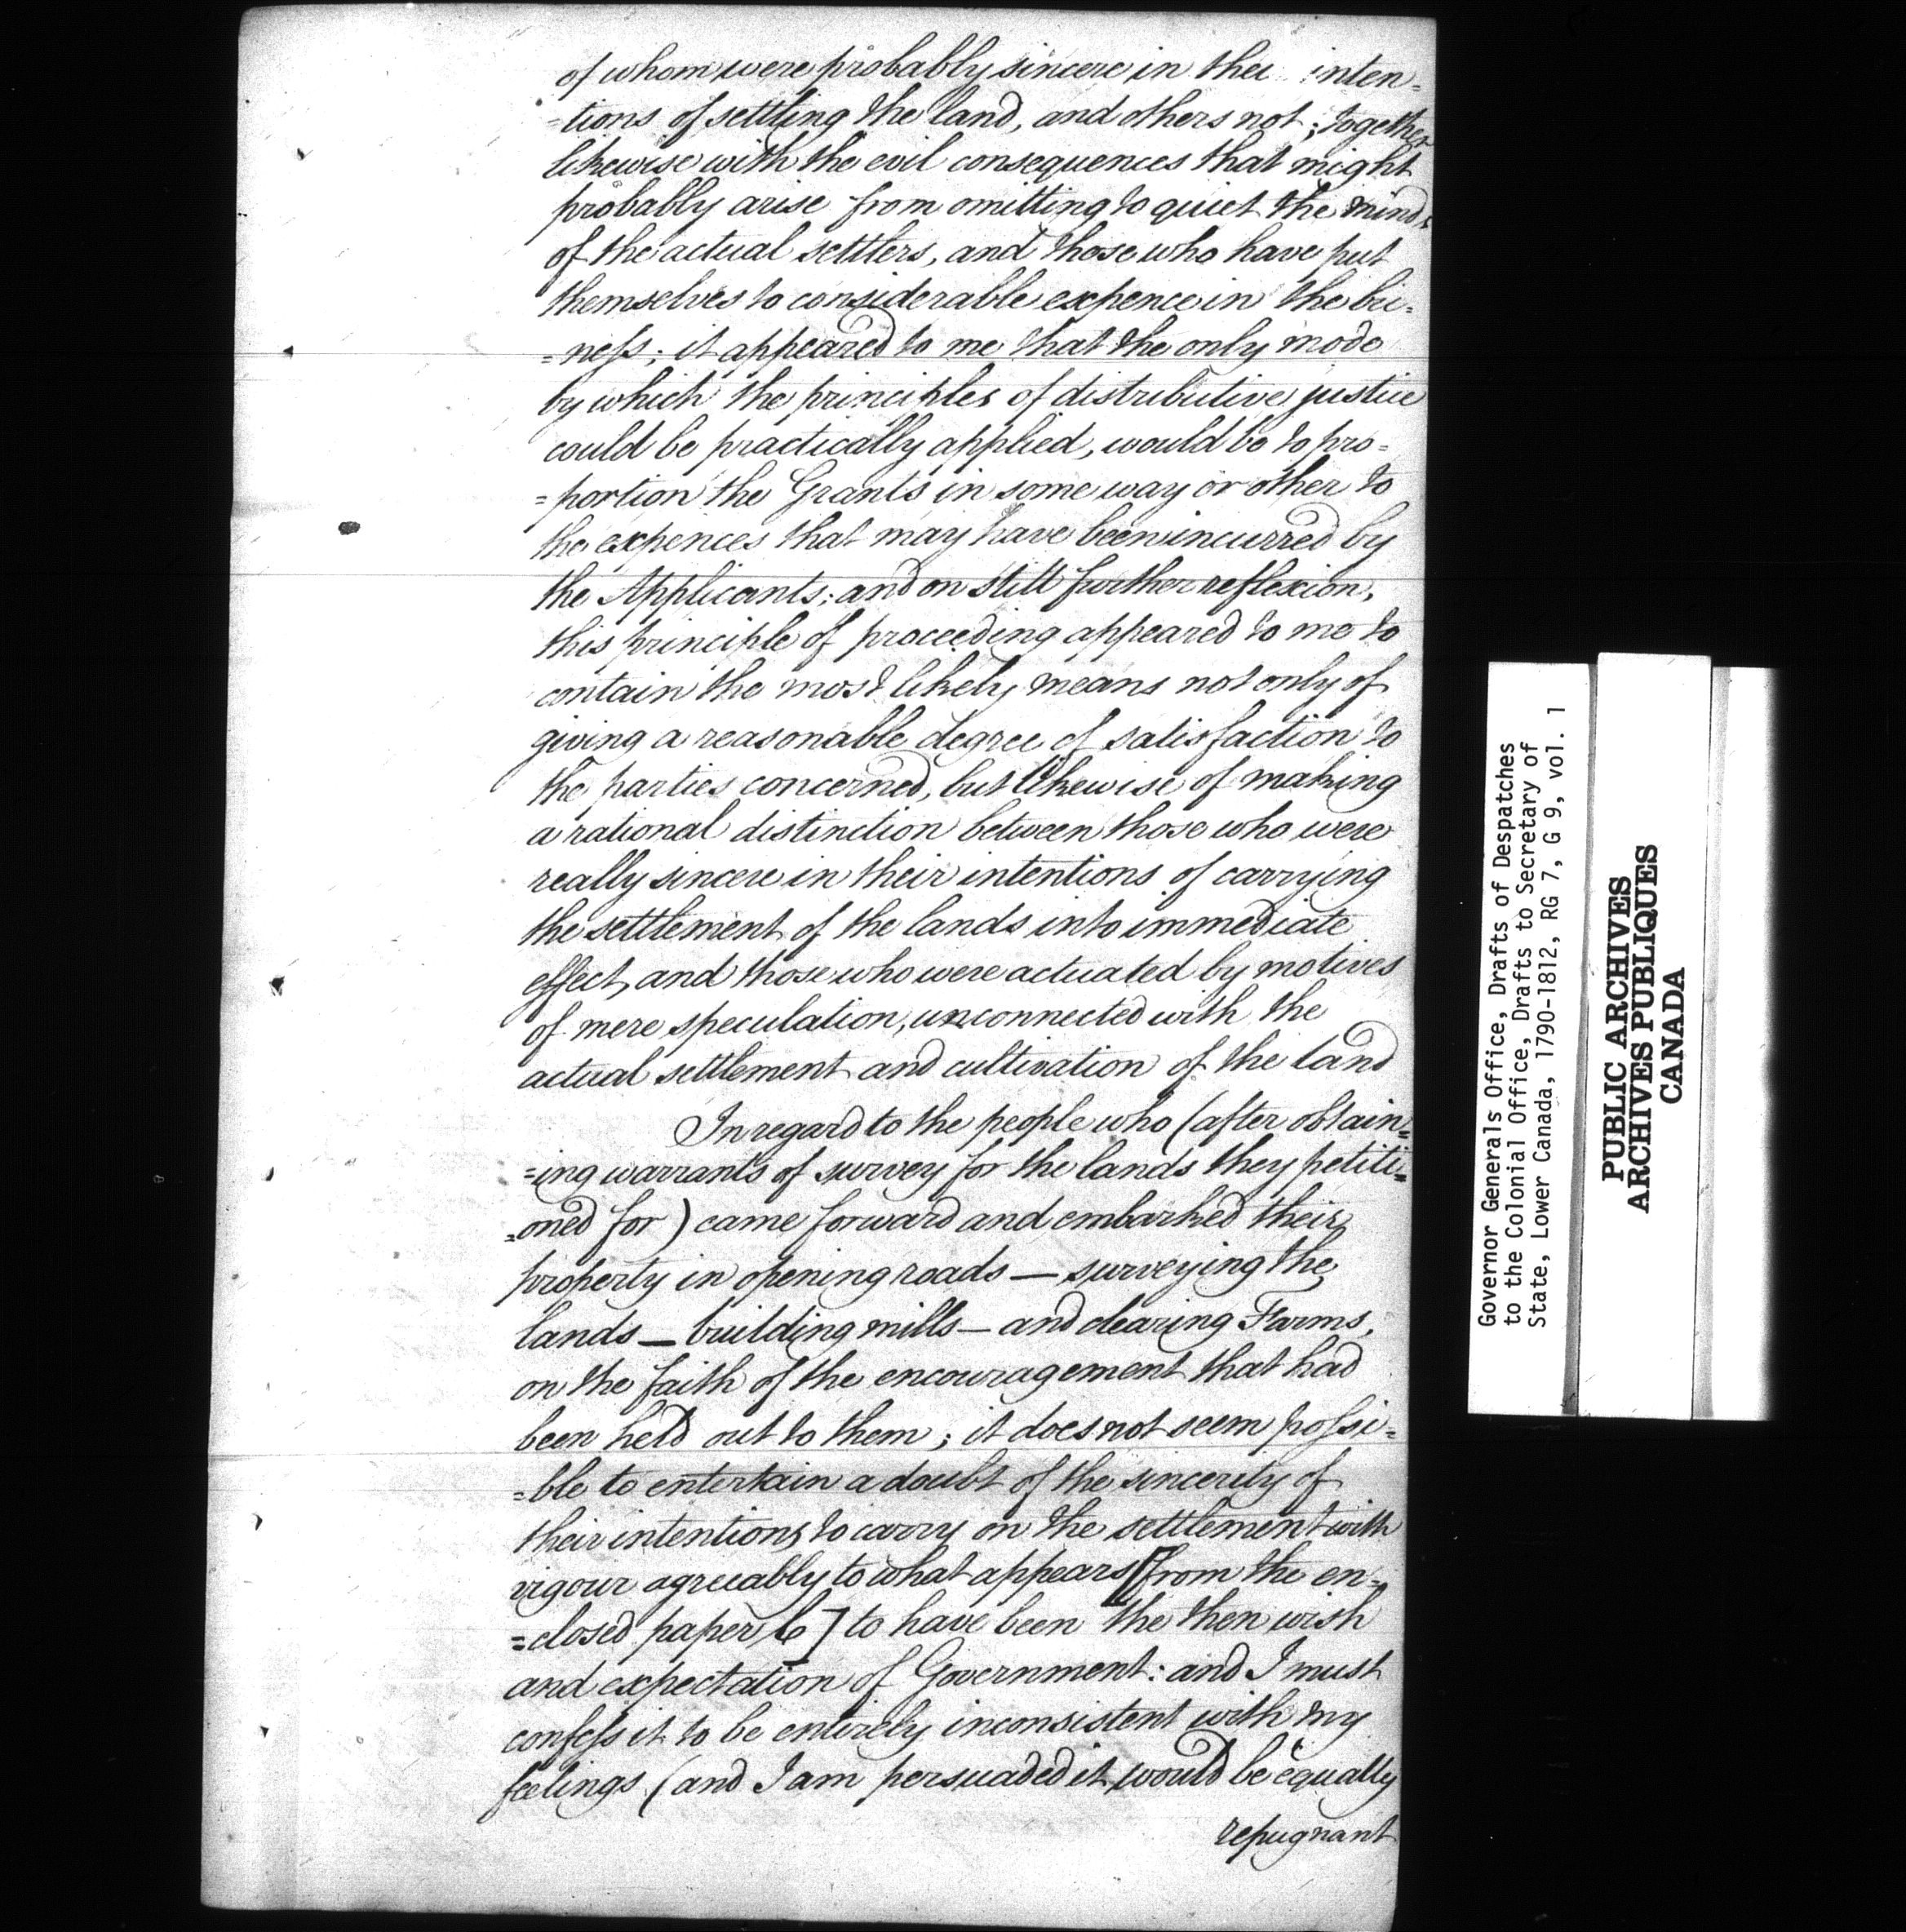 of whom were probably sincere in their inten=
=tions of settling the land, and others not; together
likewise with the evil consequences that might
probably arise from omitting to quiet the minds
of the actual settlers, and those who have put
themselves to considerable expence in the bu=
=ness; it appeared to me that the only mode
by which the principles of distributive justice
could be practically applied, would be to pro=
=portion the Grants in some way or other to
the expences that may have been incurred by
the Applicants; and on still further reflexion,
this principle of proceeding appeared to me to
contain the most likely means not only of
giving a reasonable degree of satisfaction to
the parties concerned, but likewise of making
a rational distinction between those who were
really sincere in their intentions of carrying
the settlement of the lands into immediate
effect, and those who were actuated by motives
of mere speculation, unconnected with the
actual settlement and cultivation of the land
In regard to the people who (after obtain=
=ing warrants of survey for the lands they petiti=
=oned for) came forward and embarked their
property in opening roads — surveying the
lands — building mills — and clearing Farms,
on the faith of the encouragement that had
been held out to them; it does not seem possi=
=ble to entertain a doubt of the sincerity of
their intentions to carry on the settlement with
vigour agreeably to what appears [from the en=
=closed paper 6] to have been the then wish
and expectation of Government: and I must
confess it to be entirely inconsistent with my
feelings (and I am persuaded it would be equally
repugnant
Governor Generals Office, Drafts of Despatches
to the Colonial Office, Drafts to Secretary of
State, Lower Canada, 1790-1812, RG 7, G 9, vol. 1
PUBLIC ARCHIVES
ARCHIVES PUBLIQUES
CANADA